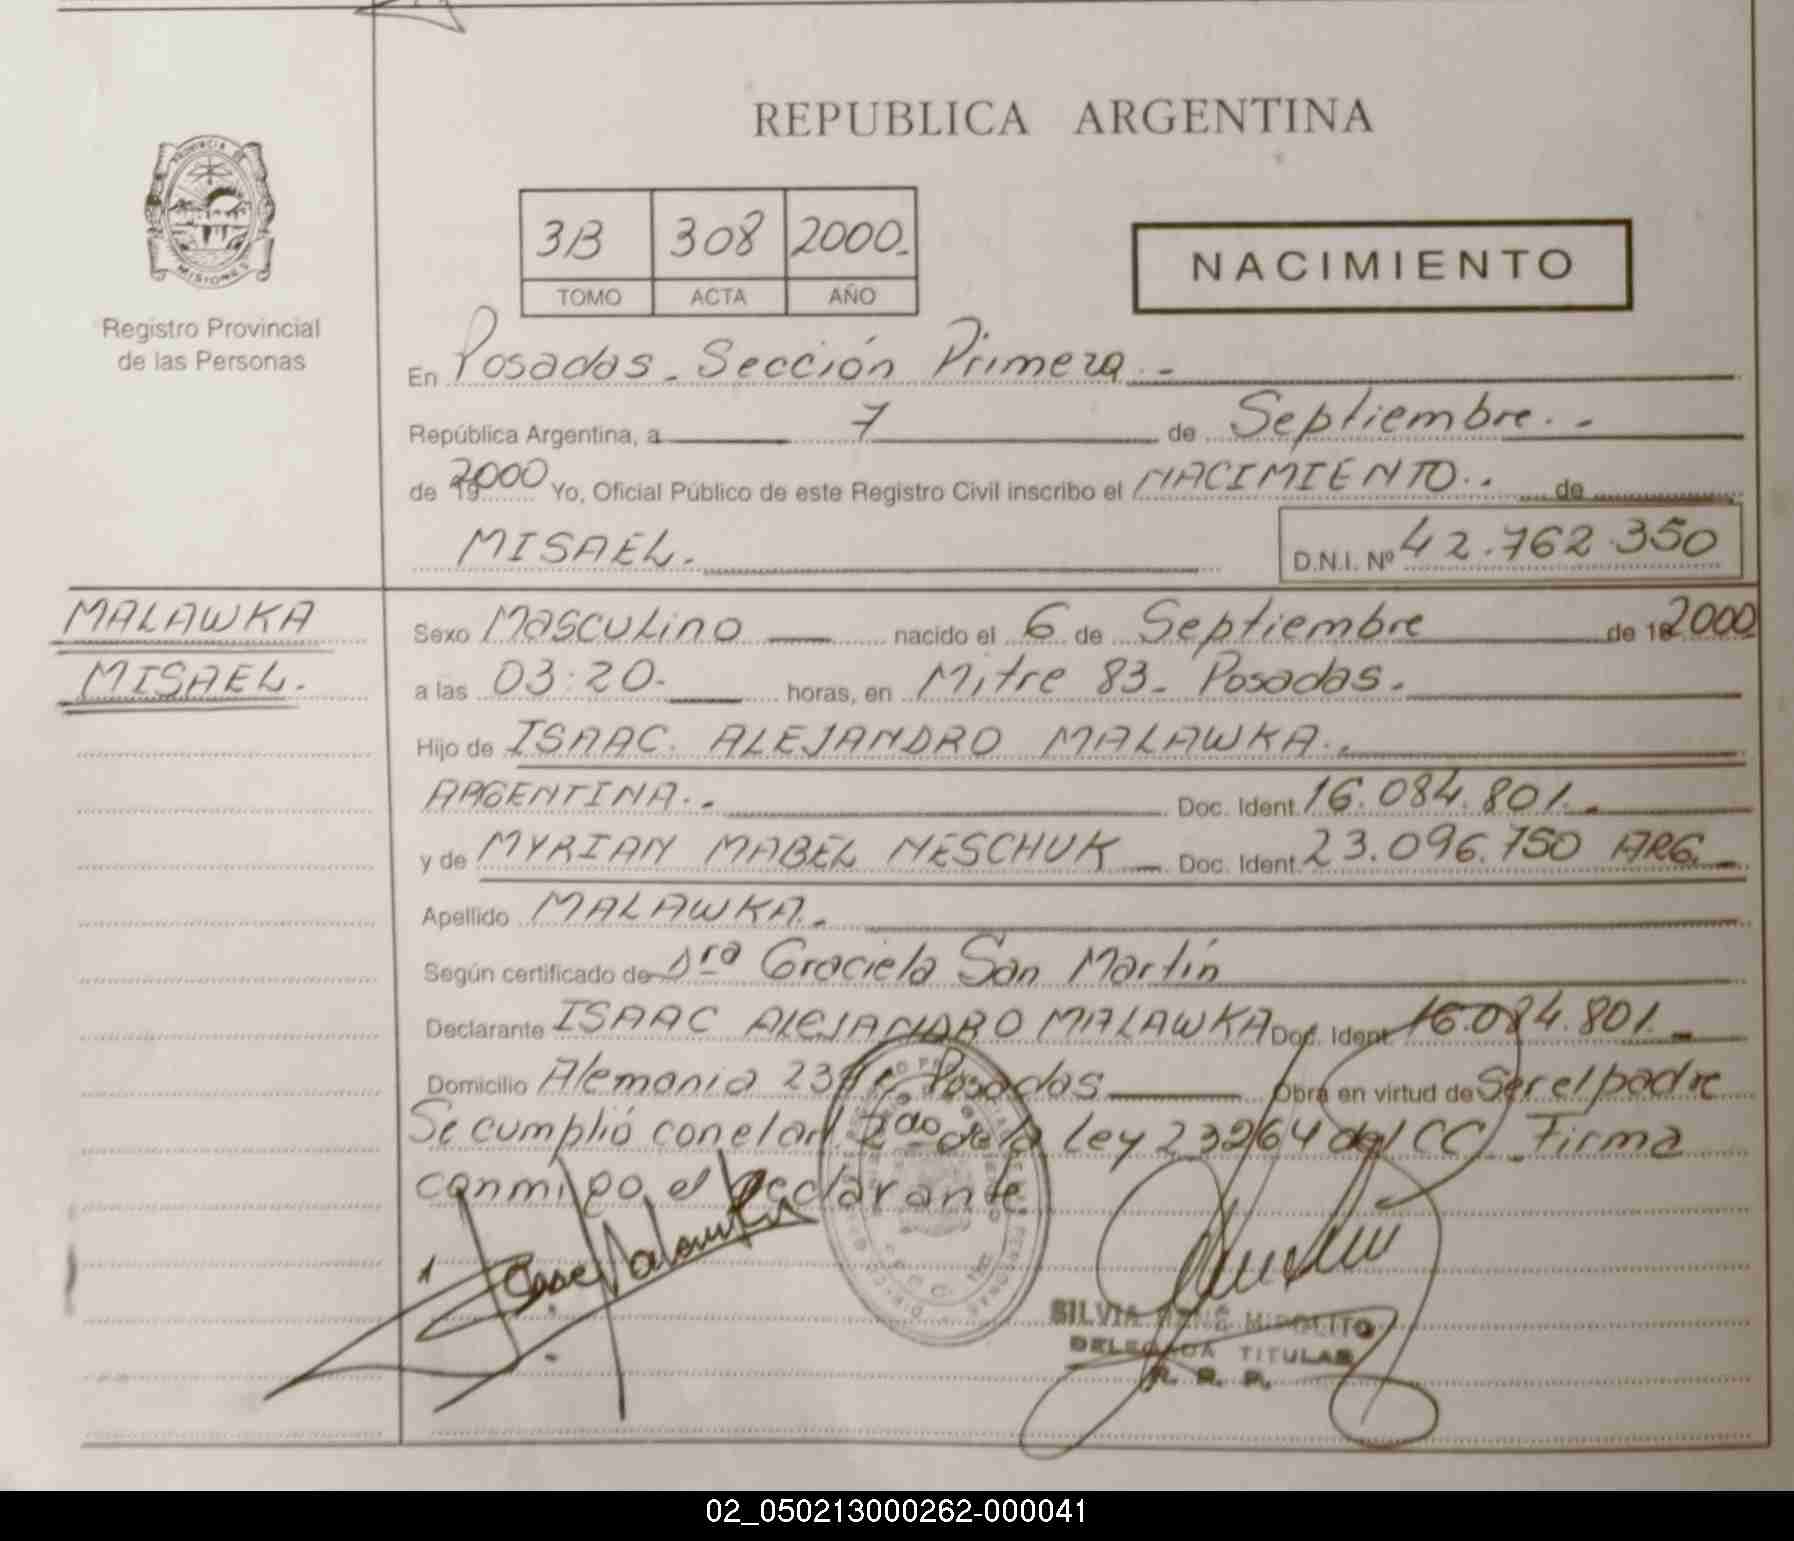 REPUBLICA ARGENTINA
PROVINCIA DE
MISIONES
Registro Provincial
de las Personas
3B 308 2000.
TOMO ACTA AÑO
NACIMIENTO
En Posadas - Sección Primera. -
República Argentina, a 7 de Septiembre. -
de 2000 Yo, Oficial Público de este Registro Civil inscribo el NACIMIENTO.. de
MISAEL. D.N.I. Nº 42.762.350
MALAWKA
MISAEL.
Sexo Masculino nacido el 6 de Septiembre de 2000
a las 03:20. horas, en Mitre 83 - Posadas.
Hijo de ISAAC. ALEJANDRO MALAWKA..
ARGENTINA.. Doc. Ident. 16.084.801. -
y de MYRIAN MABEL NESCHUK Doc. Ident. 23.096.750 ARG.
Apellido MALAWKA.
Según certificado de Dra Graciela San Martín
Declarante ISAAC ALEJANDRO MALAWKA Doc. Ident. 16.084.801.
Domicilio Alemania Posadas Obra en virtud de Ser el padre
Se cumplió con el art. 2do de la Ley 23264 del CC. Firma
conmigo el Declarante
SILVIA RENÉ HIPOLITO
DELEGADA TITULAR
R. P.
02_050213000262-000041